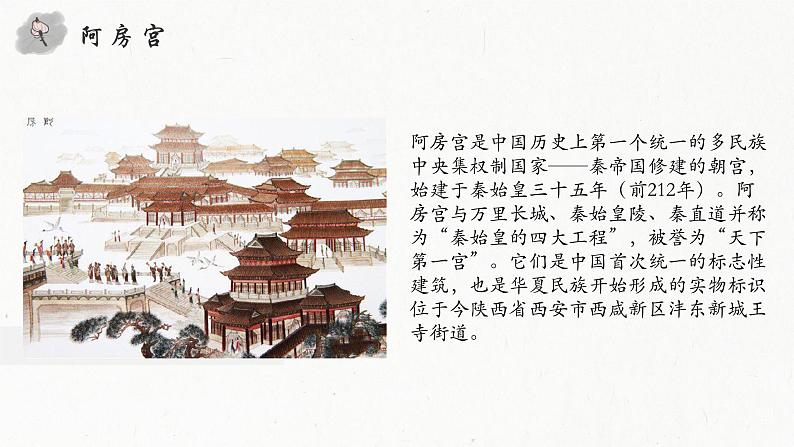 阿房宫
阿房宫是中国历史上第一个统一的多民族
中央集权制国家——秦帝国修建的朝宫，
始建于秦始皇三十五年（前212年）。阿
房宫与万里长城、秦始皇陵、秦直道并称
为“秦始皇的四大工程”，被誉为“天下
第一宫”。它们是中国首次统一的标志性
建筑，也是华夏民族开始形成的实物标识
位于今陕西省西安市西咸新区沣东新城王
寺街道。